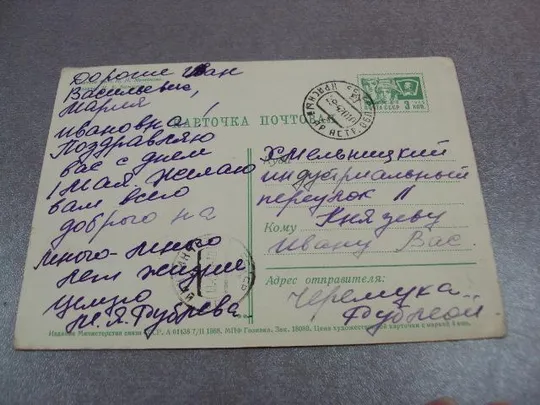 Дорогие Иван
Васильевич,
Мария
Ивановна!
Поздравляю
вас с днем
1 Мая желаю
вам всего
доброго на
много-много
лет жизни
целую
ПОЧТА СССР 3 коп.
КАРТОЧКА ПОЧТОВАЯ
Хмельницкий
индустриальный
переулок 11
Кому Князеву
Ивану Вас.
Адрес отправителя:
Издание Министерства связи СССР. А 01436 7/II 1968. МПФ Гознака. Зак. 18080. Цена художественной карточки с маркой 4 коп.